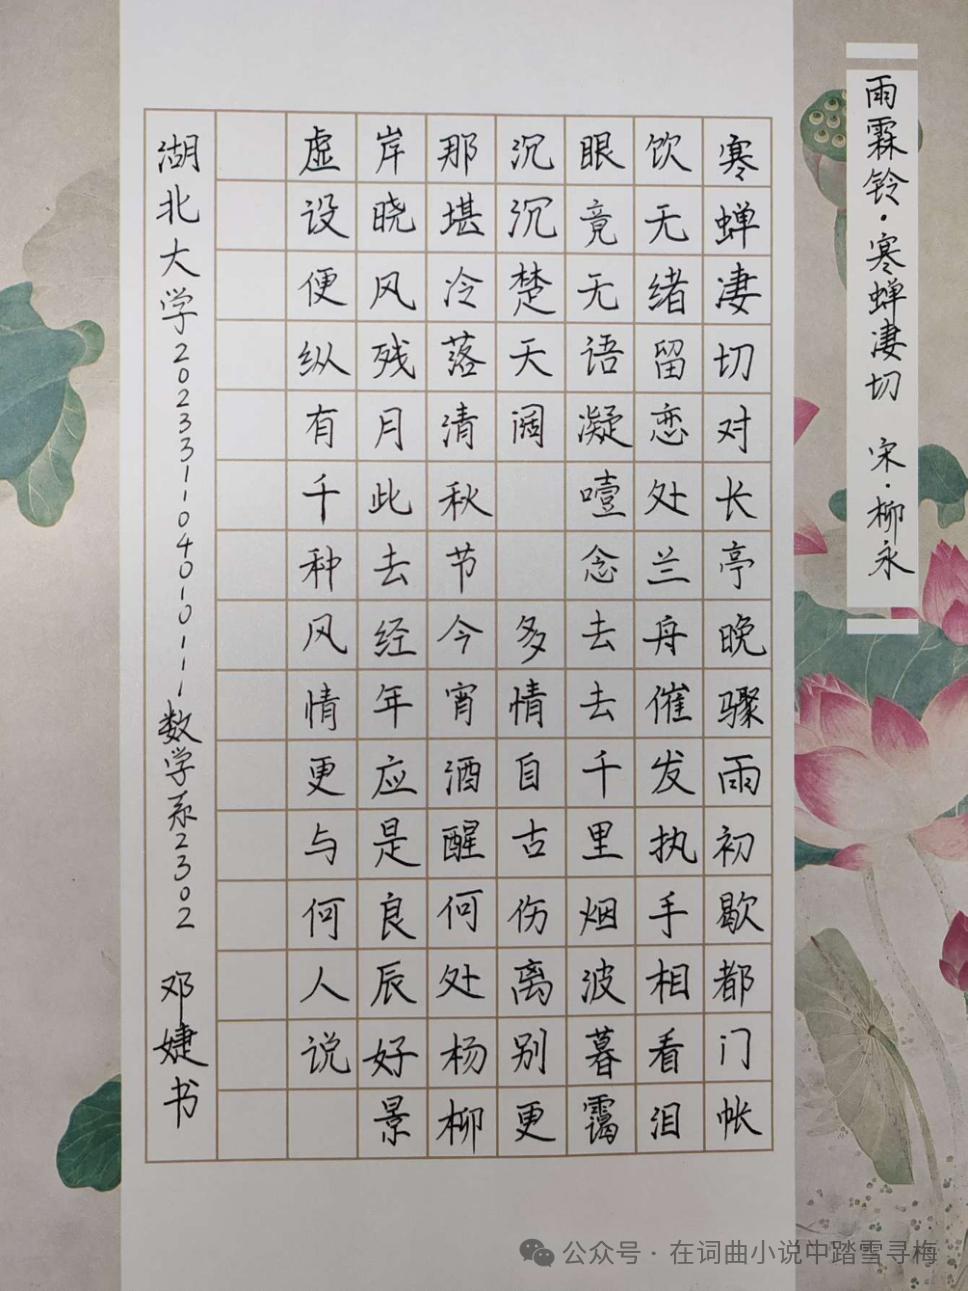 雨霖铃·寒蝉凄切 宋·柳永
寒蝉凄切对长亭晚骤雨初歇都门帐
饮无绪留恋处兰舟催发执手相看泪
眼竟无语凝噎念去去千里烟波暮霭
沉沉楚天阔 多情自古伤离别更
那堪冷落清秋节今宵酒醒何处杨柳
岸晓风残月此去经年应是良辰好景
虚设便纵有千种风情更与何人说
湖北大学202331104010111数学系2302 邓婕书
公众号·在词曲小说中踏雪寻梅